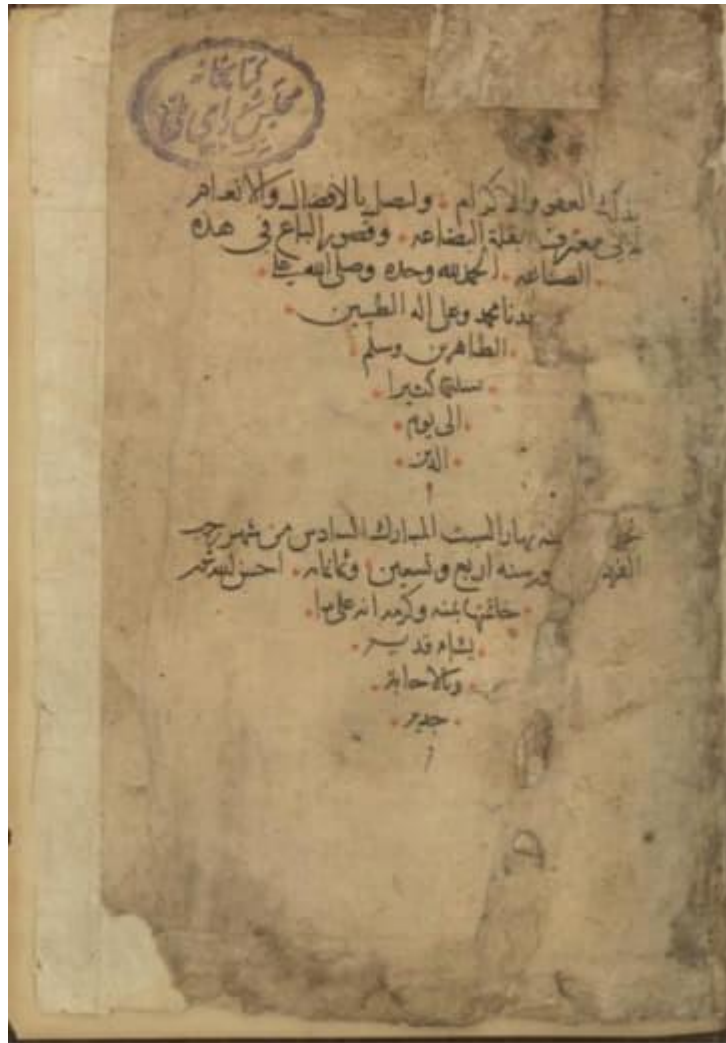 كتابخانه
مجلس شورای ملی
العفو والاكرام . وليصل بالافضال والانعام
معترف بقلة البضاعه . وقصور الباع فى هده
الصناعه . الحمد لله وحده وصلى الله على
محمد وعلى اله الطيبين
الطاهرين وسلم
تسليما كثيرا
الى يوم
الدين
نهار السبت المبارك السادس من شهور رجب
الفرد سنه اربع وتسعين وثمانمايه . احسن الله
خاتمتها بمنه وكرمه انه على ما
يشاء قدير
وبالاجابة
جدير